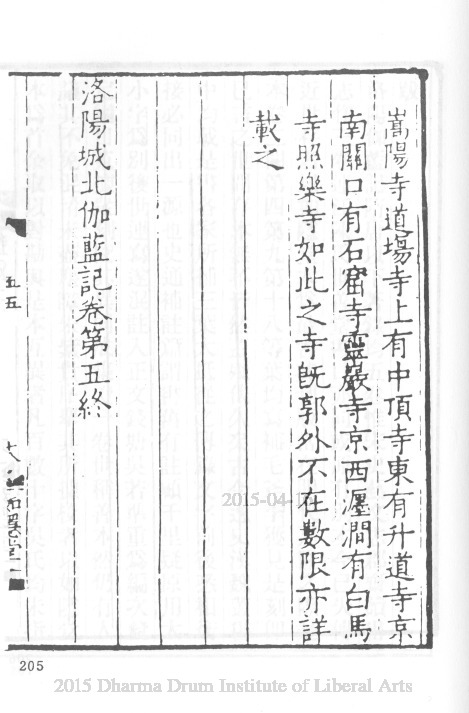 嵩陽寺道場寺上有中頂寺東有升道寺京
南關口有石窟寺靈巖寺京西瀍澗有白馬
寺照樂寺如此之寺既郭外不在數限亦詳
載之
洛陽城北伽藍記卷第五終
五五
2015-04-1
205
2015 Dharma Drum Institute of Liberal Arts